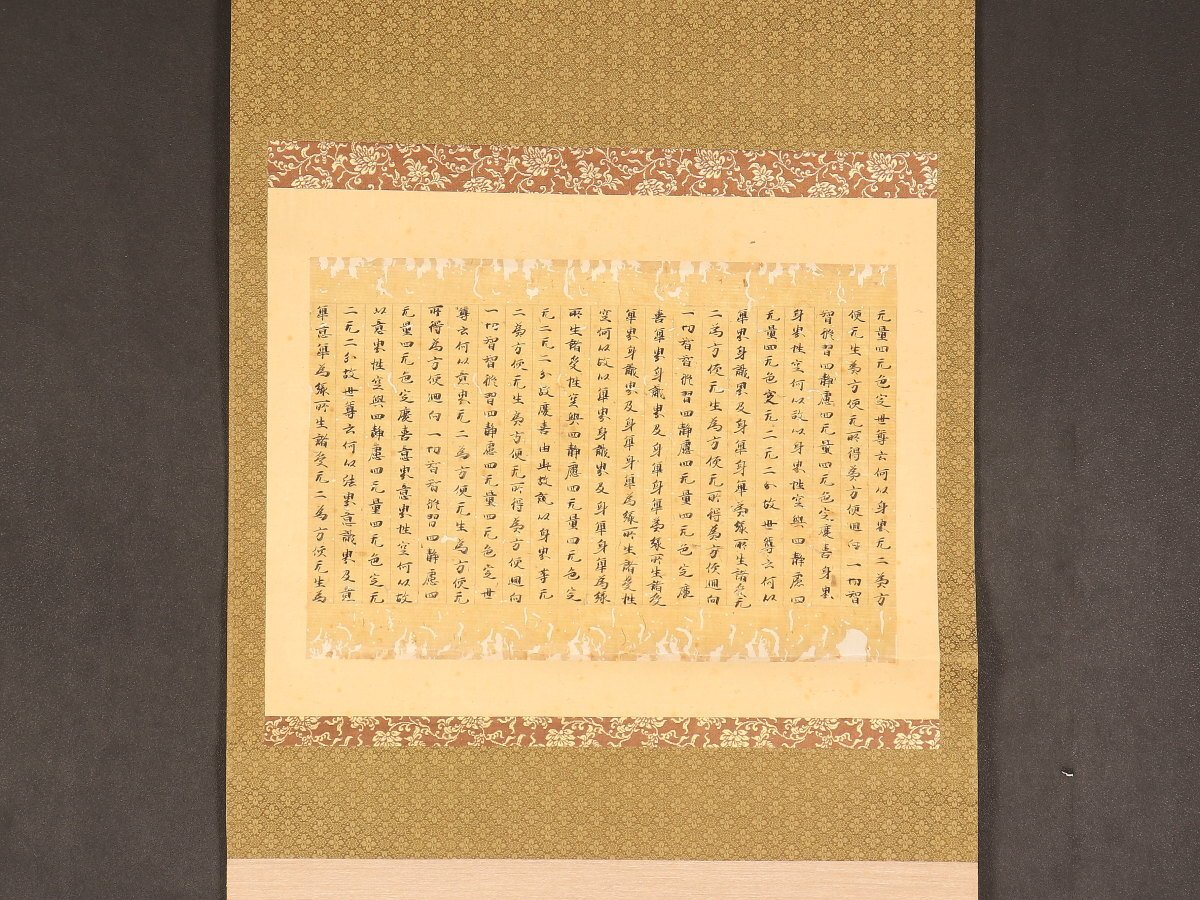 无量四无色定世尊云何以身界无二為方
便无生為方便无所得為方便迴向一切智
智修習四靜慮四无量四无色定慶喜身界
身界性空何以故以身界性空與四靜慮四
无量四无色定无二无二分故世尊云何以
觸界身識界及身觸身觸為緣所生諸受无
二為方便无生為方便无所得為方便迴向
一切智智修習四靜慮四无量四无色定慶
喜觸界身識界及身觸身觸為緣所生諸受
觸界身識界及身觸身觸為緣所生諸受性
空何以故以觸界身識界及身觸身觸為緣
所生諸受性空與四靜慮四无量四无色定
无二无二分故慶喜由此故說以身界等无
二為方便无生為方便无所得為方便迴向
一切智智修習四靜慮四无量四无色定世
尊云何以意界无二為方便无生為方便无
所得為方便迴向一切智智修習四靜慮四
无量四无色定慶喜意界意界性空何以故
以意界性空與四靜慮四无量四无色定无
二无二分故世尊云何以法界意識界及意
觸意觸為緣所生諸受无二為方便无生為